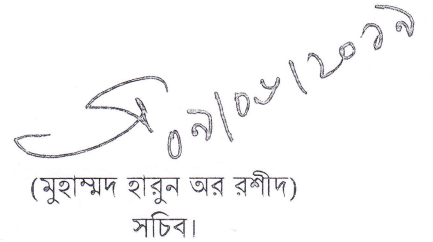 ০৯/০৮/২০১৯
(মুহাম্মদ হারুন অর রশীদ)
সচিব।